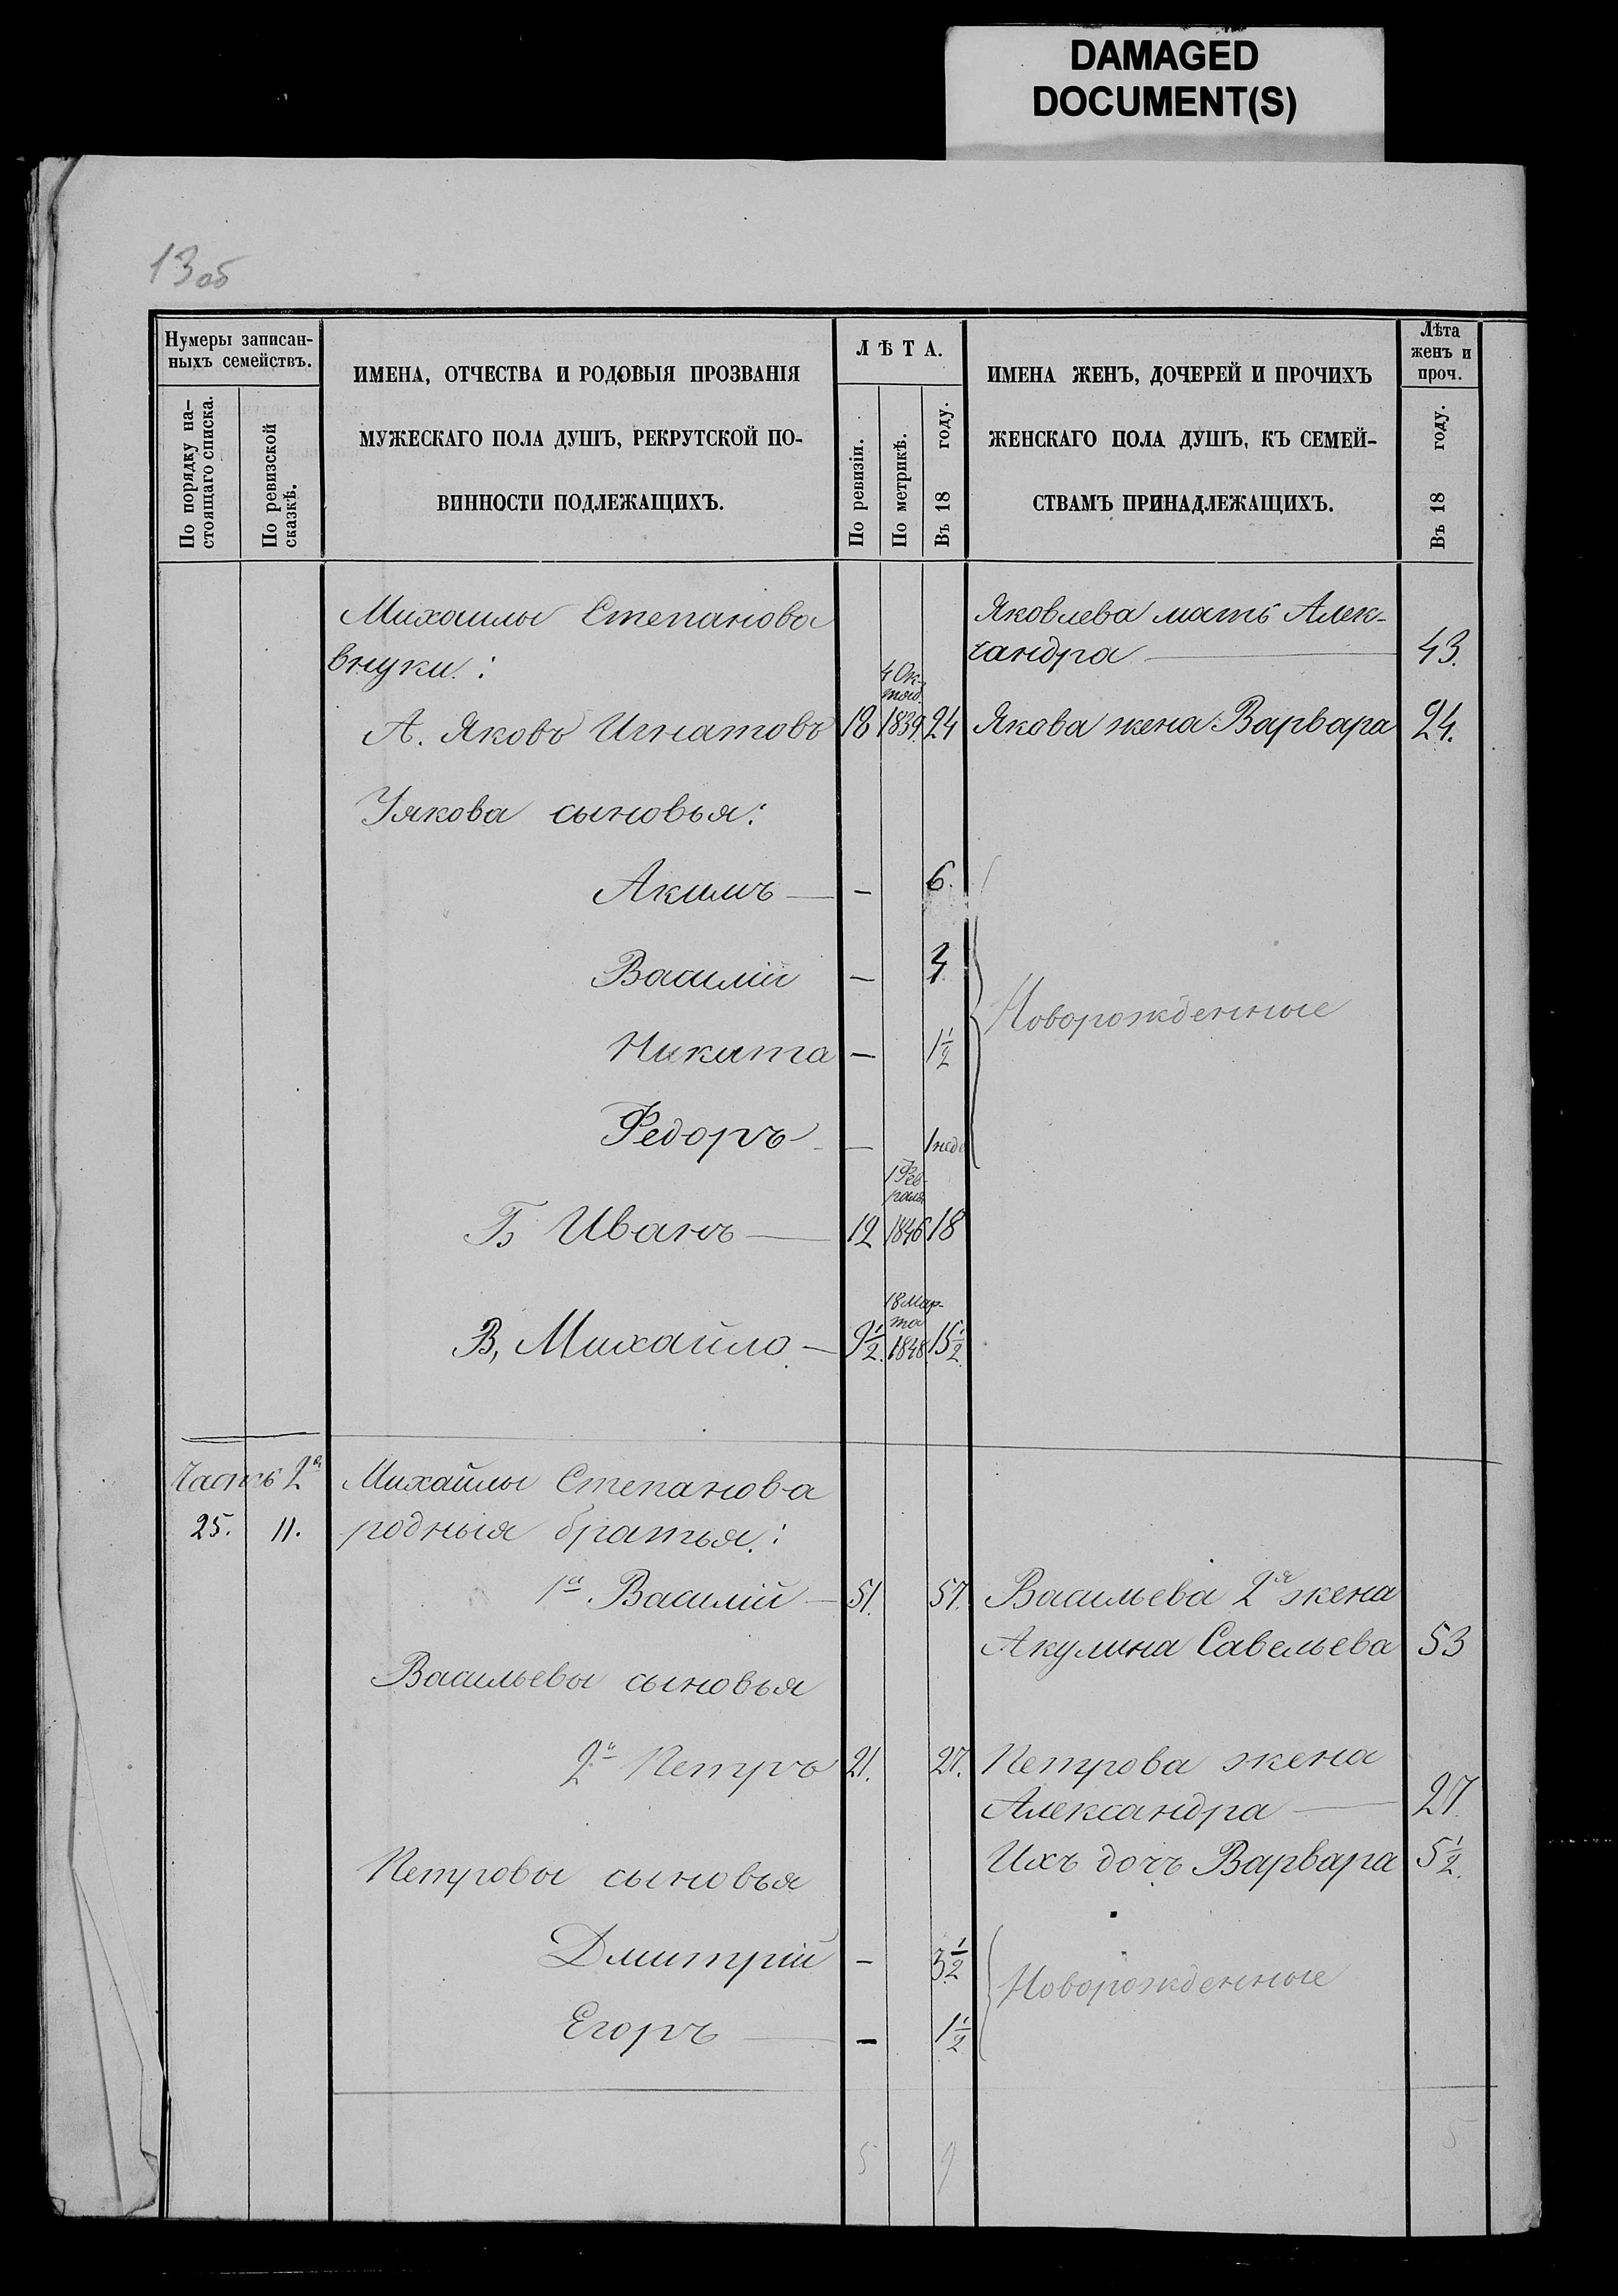 DAMAGED
DOCUMENT(S)
13 об
Нумеры записан-
ныхъ семействъ.
По порядку на-
стоящаго списка.
По ревизской
сказкѣ.
ИМЕНА, ОТЧЕСТВА И РОДОВЫЯ ПРОЗВАНІЯ
МУЖЕСКАГО ПОЛА ДУШЪ, РЕКРУТСКОЙ ПО-
ВИННОСТИ ПОДЛЕЖАЩИХЪ.
ЛѢТА.
По ревизіи.
По метрикѣ.
Въ 18 году.
ИМЕНА ЖЕНЪ, ДОЧЕРЕЙ И ПРОЧИХЪ
ЖЕНСКАГО ПОЛА ДУШЪ, КЪ СЕМЕЙ-
СТВАМЪ ПРИНАДЛЕЖАЩИХЪ.
Лѣта
женъ и
проч.
Въ 18 году.
Михайлы Степанова
внуки:
Яковлева мать Алек-
сандра — 43.
4 Ок-
тяб.
А. Яковъ Игнатовъ 18 1839. 24 Якова жена Варвара 24.
Уякова сыновья:
Акимъ — – 6.
Василій – 3
Никита – 1½
Новорожденные
Федоръ – 1 нед
1 Фев-
раля
Б Иванъ — 12 1846 18
18 Мар-
та
В, Михайло — 9½. 1848 15½.
Часть 2я
25. 11.
Михайлы Степанова
родныя братья:
1й Василій — 51. 57. Васильева 2я жена
Акулина Савельева 53
Васильевы сыновья
2й Петръ 21. 27. Петрова жена
Александра — 27
Ихъ дочь Варвара 5½.
Петровы сыновья
Дмитрій – 3½
Егоръ — – 1½
Новорожденные
5 9 5